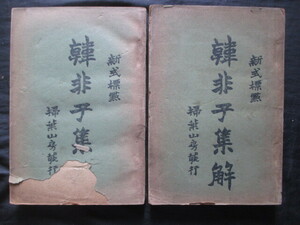 新式標點
韓非子集
掃葉山房發行
新式標點
韓非子集解
掃葉山房發行